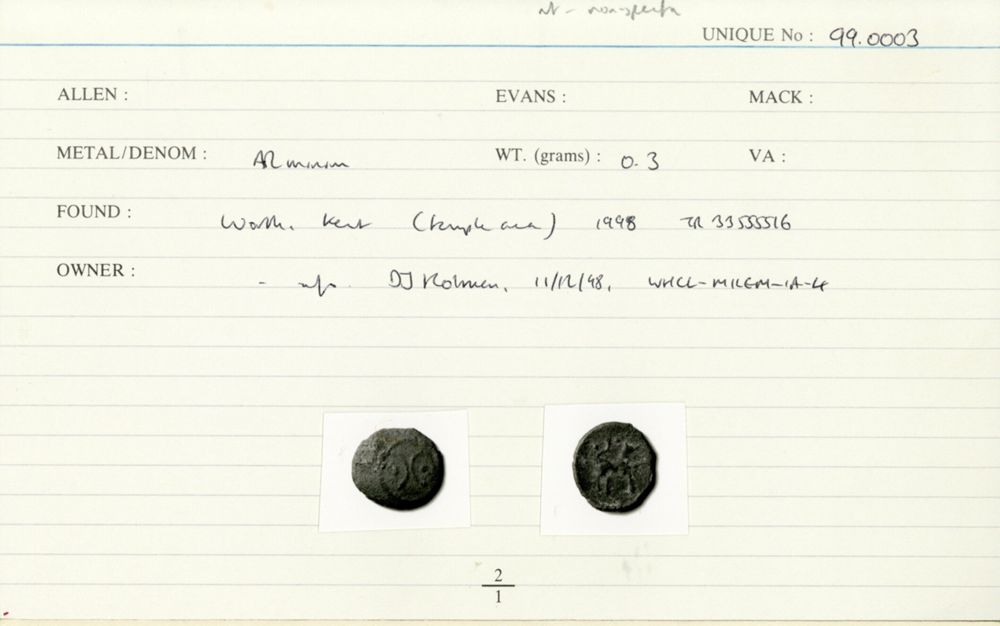 UNIQUE No : 99.0003
ALLEN : EVANS : MACK :
METAL/DENOM : AR minim WT. (grams) : 0.3 VA :
FOUND : Worth, Kent (temple area) 1998 TR 33555516
OWNER : - info. DJ Holman, 11/12/98,
2
1